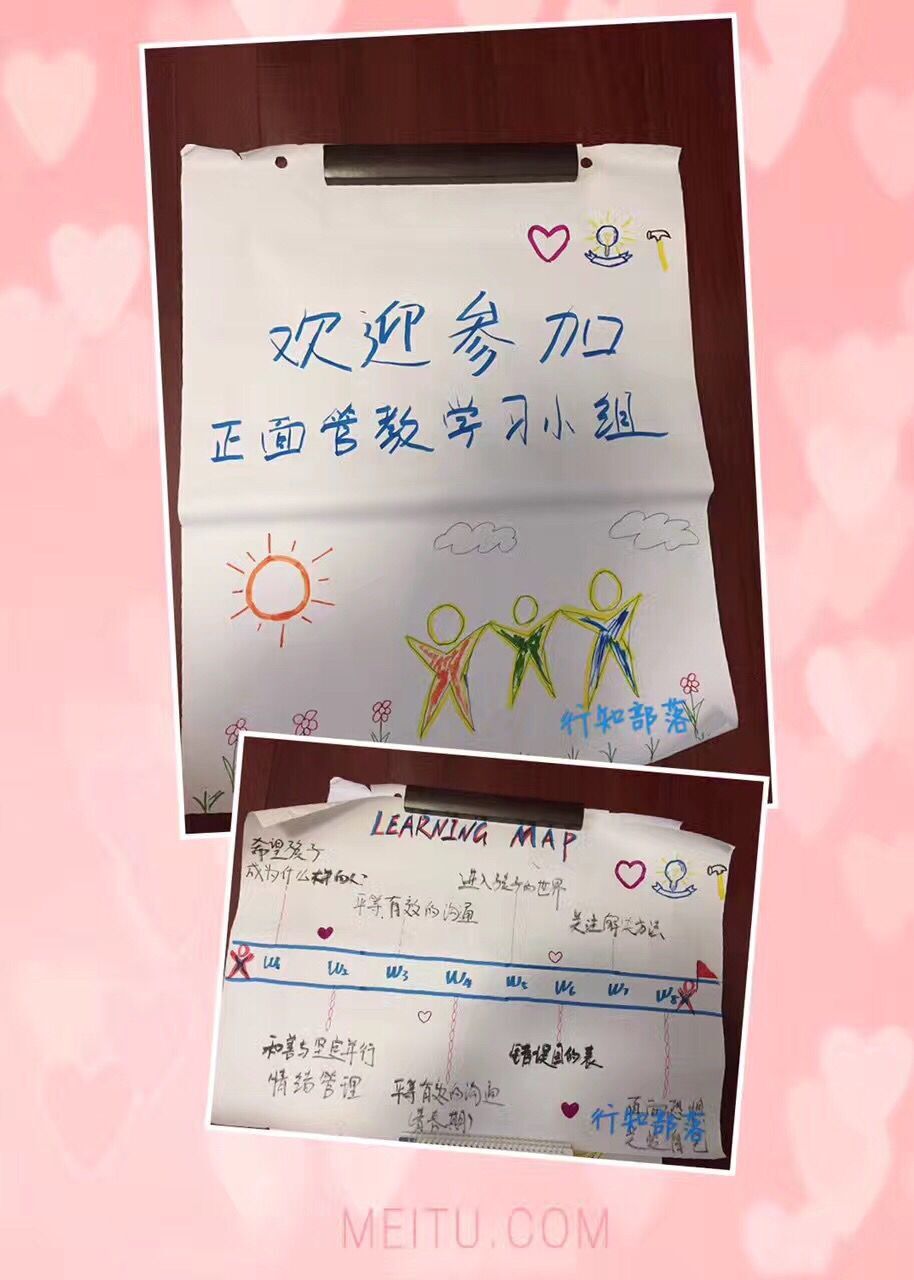 欢迎参加
正面管教学习小组
行知部落
LEARNING MAP
希望孩子
成为什么样的人？
平等有效的沟通
进入孩子的世界
关注解决方法
W1 W2 W3 W4 W5 W6 W7 W8
和善与坚定并行
情绪管理
平等有效的沟通
(青春期)
错误目的表
行知部落
MEITU.COM